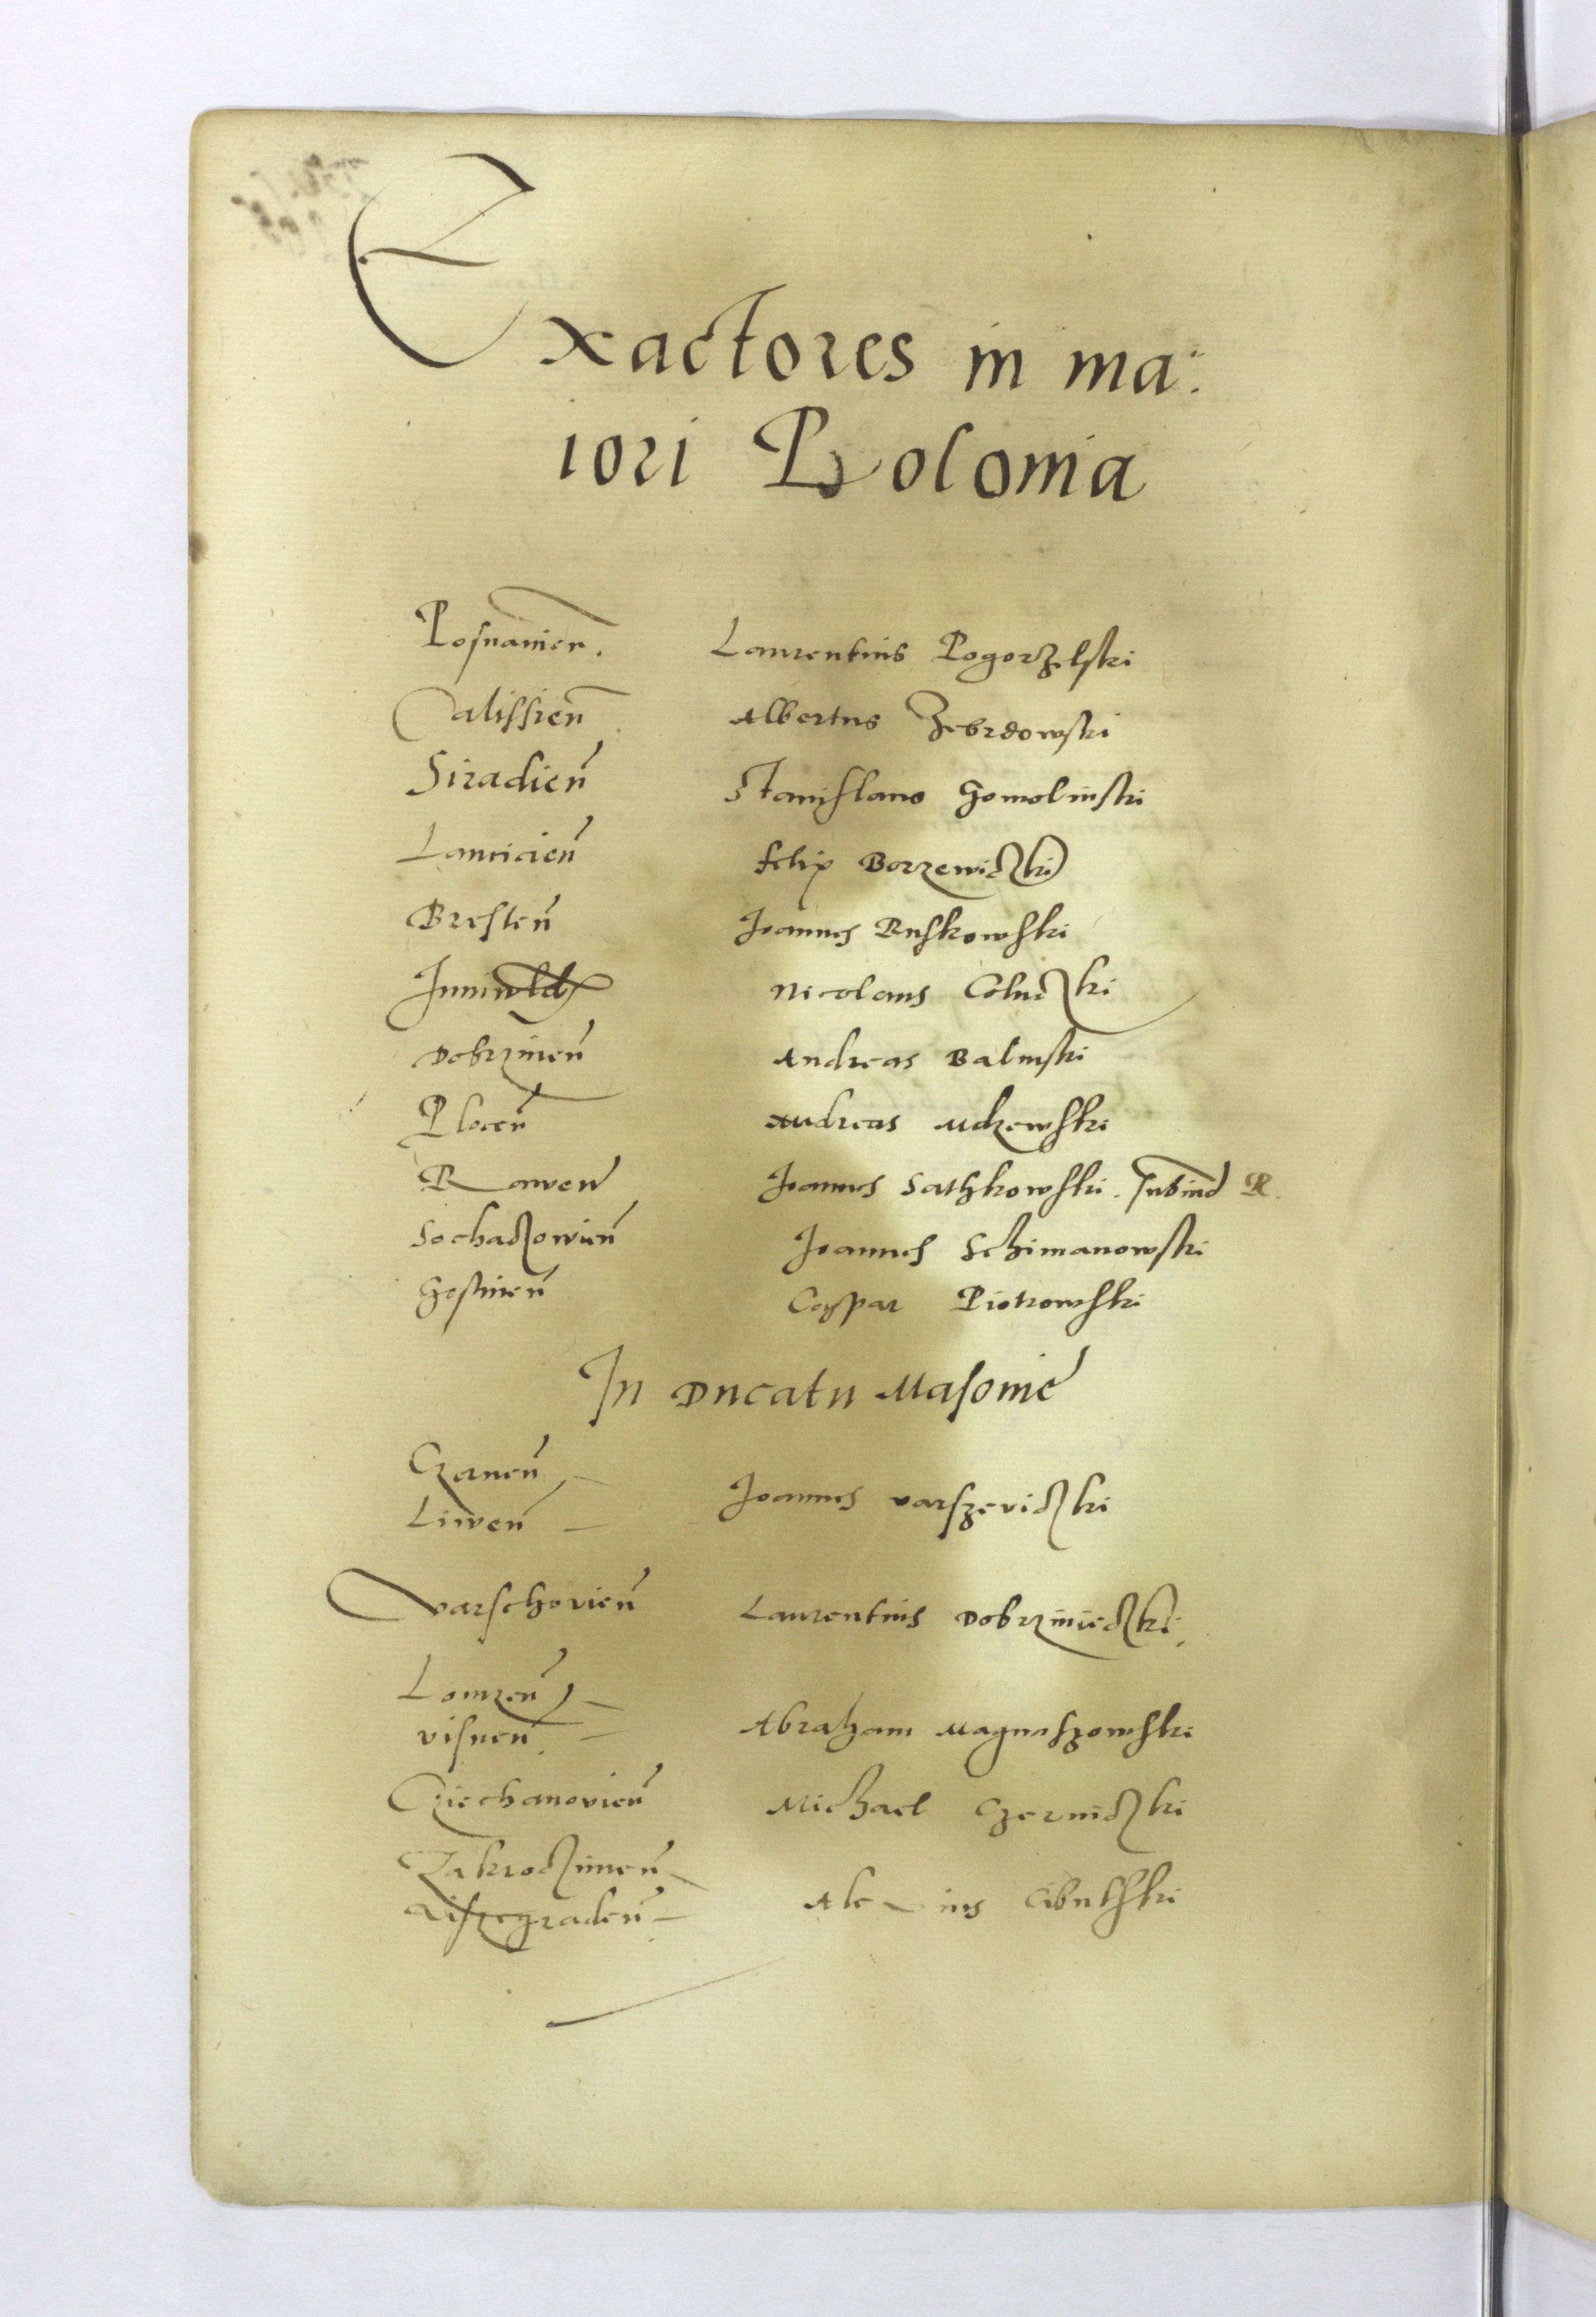 Exactores in ma:
iori Polonia
Posnanien. Laurentius Pogorzelski
Calissien Albertus Zebrdowski
Siradien Stanislaus Gomolinski
Lancicien Felix Borzewiczki
Bresten Joannes Ruskowski
Juniwladx Nicolaus Coluczki
Dobrzinien Andreas Balinski
Plocen Andreas Mdzewski
Rawen Joannes Sathkowski. R.
Sochaczowien Joannes Schimanowski
Gostinen Caspar Piotrowski
In Ducatu Masovie
Czernen
Liwen Joannes Varszeviczki
Varschovien Laurentius Dobrzinieczki
Lomzen
Visnen Abraham Magnuszowski
Cziechanovien Michael Czerniczki
Zakroczimen
Viszegraden Alexius Cibulski